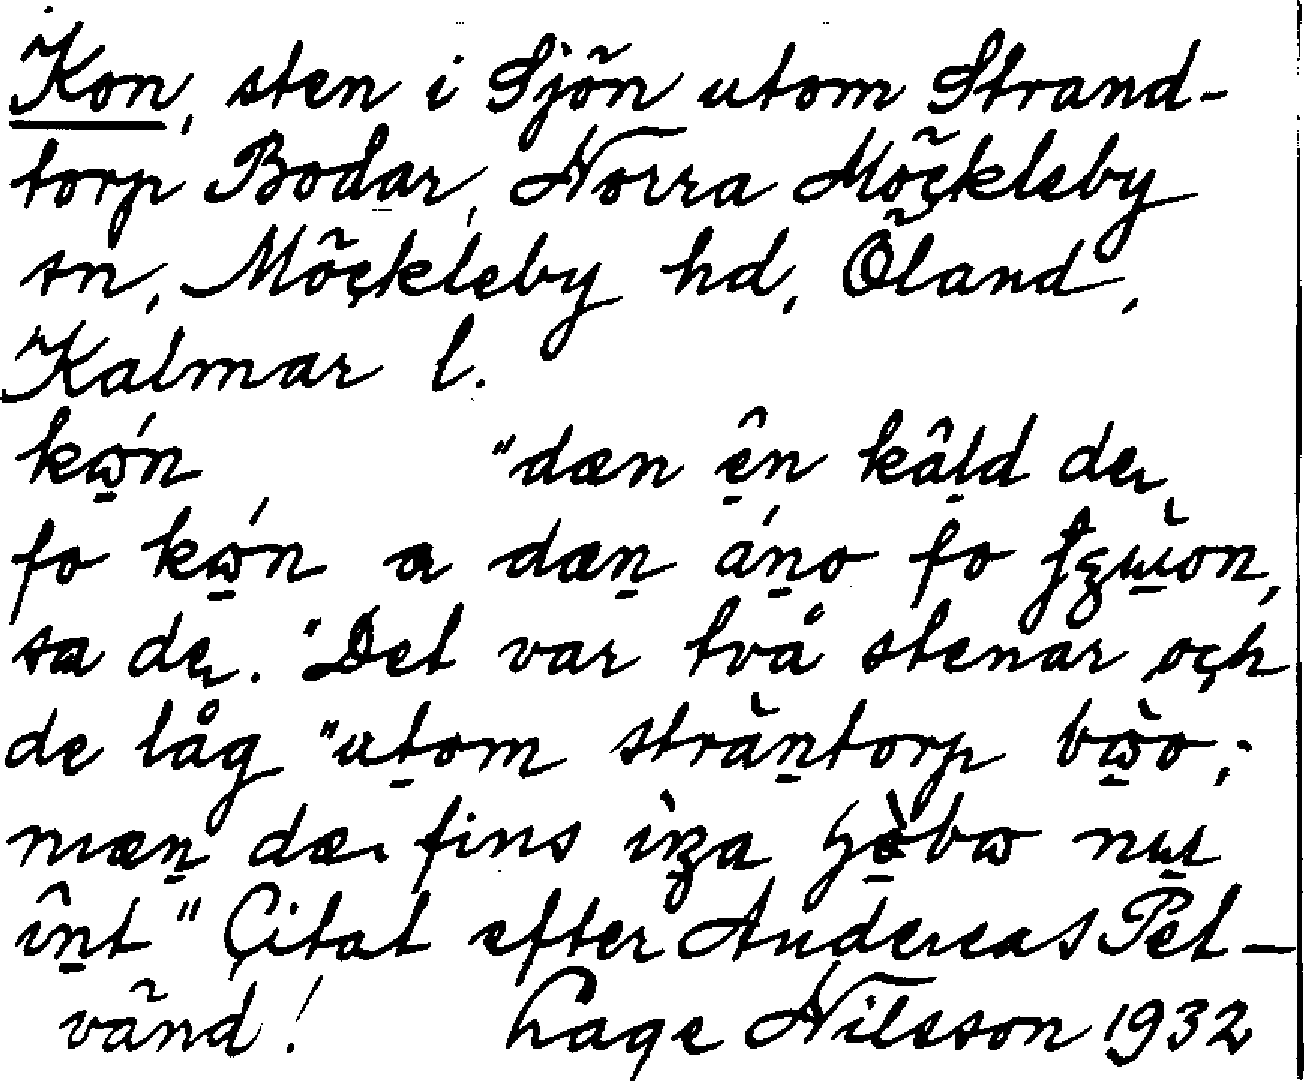 Kon, sten i Sjön utom Strand-
torp Bodar, Norra Möckleby
sn, Möckleby hd, Öland,
Kalmar l.
kώ̱n "dæn ê̱n kâḻd de
fo kώ̱n a dæṉ áṉo fo
sa de. "Det var två stenar och
de låg "uṯom stràṉtorp bὼ̱o,-
mæṉ dæ fins nu̱
îṉt" Citat efter Andereas Pet-
vänd! Lage Nilsson 1932